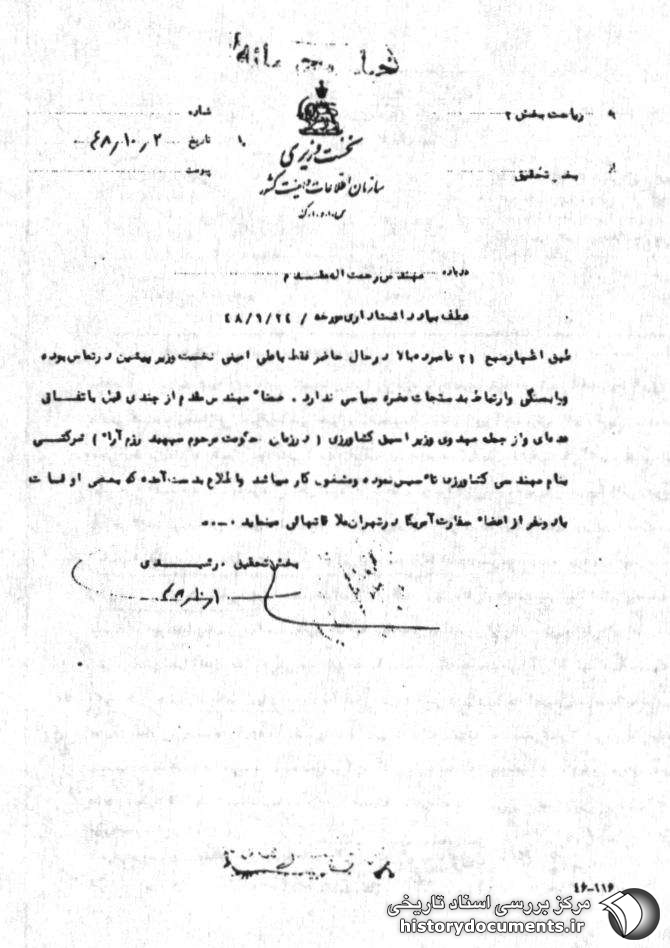 به ریاست بخش ۲ شماره
از بخش تحقیق تاریخ ۲ ر ۱۰ ر ۴۸
پیوست
نخست وزیری
سازمان اطلاعات و امنیت کشور
س.ا.و.ا.ک
درباره مهندس رحمت اله مقدم
عطف بیاد داشت اداری مورخه / ۴۸/۹/۲۴
طبق اظهار منبع ۲۱ نامبرده بالا در حال حاضر فقط با علی امینی نخست وزیر پیشین در تماس بوده
و وابستگی و ارتباط بدستجات مضره سیاسی ندارد . ضمناً مهندس مقدم از چندی قبل باتفاق
عده‌ای و از جمله مهدوی وزیر اسبق کشاورزی ( در زمان حکومت مرحوم سپهبد رزم آرا ) شرکتی
بنام مهندسی کشاورزی تاسیس نموده و مشغول کار میباشد و اطلاع بدست آمده که بعضی اوقات
با دو نفر از اعضاء سفارت آمریکا در تهران ملاقاتهائی مینماید
بخش تحقیق . رشیدی
۴۶-۱۱۶
مرکز بررسی اسناد تاریخی
historydocuments.ir